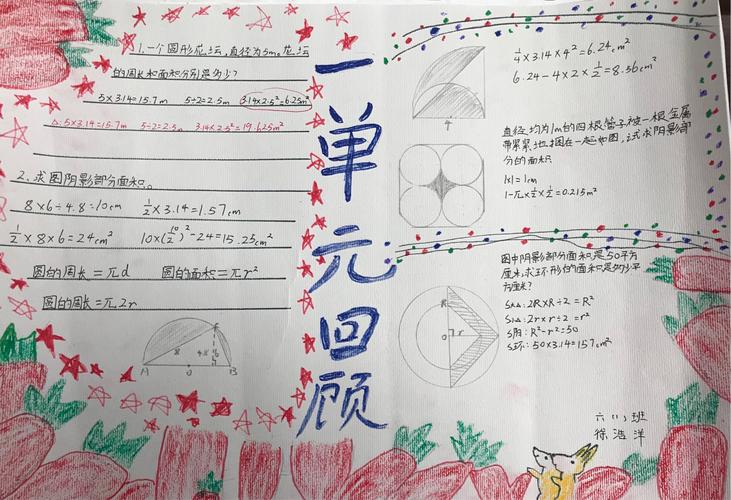 一单元回顾
1.一个圆形花坛,直径为5m。花坛
的周长和面积分别是多少?
5×3.14=15.7m 5÷2=2.5m 3.14×2.5²=6.25m²
△:5×3.14=15.7m 5÷2=2.5m 3.14×2.5²=19.625m²
2.求图阴影部分面积。
8×6÷4.8=10cm ½×3.14=1.57cm
½×8×6=24cm² 10×(10/2)²-24=15.25cm²
圆的周长=πd 圆的面积=πr²
圆的周长=π2r
8 4.8 6
A O B
¼×3.14×4²=6.24cm²
6.24-4×2×½=8.56cm²
4
直径均为1m的四根管子被一根金属
带紧紧地捆在一起如图,试求阴影部
分的面积
1×1=1cm
1-π×½×½=0.215m²
图中阴影部分面积是50平方
厘米,求环形的面积是多少平
方厘米?
S大△:2R×R÷2=R²
S小△:2r×r÷2=r²
S阴:R²-r²=50
S环:50×3.14=157cm²
R
O r
六(1)班
徐浩洋